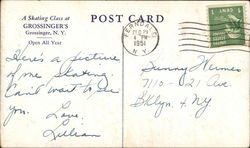 A Skating Class at
GROSSINGER'S
Grossinger, N. Y.
Open All Year
POST CARD
FERNDALE
DEC 29
4 PM
1951
N.Y.
1¢
Here's a picture
of me skating.
Can't wait to see
you.
Love,
Lillian
Sunny Wermes
7110 - 21 Ave
Bklyn 4 NY